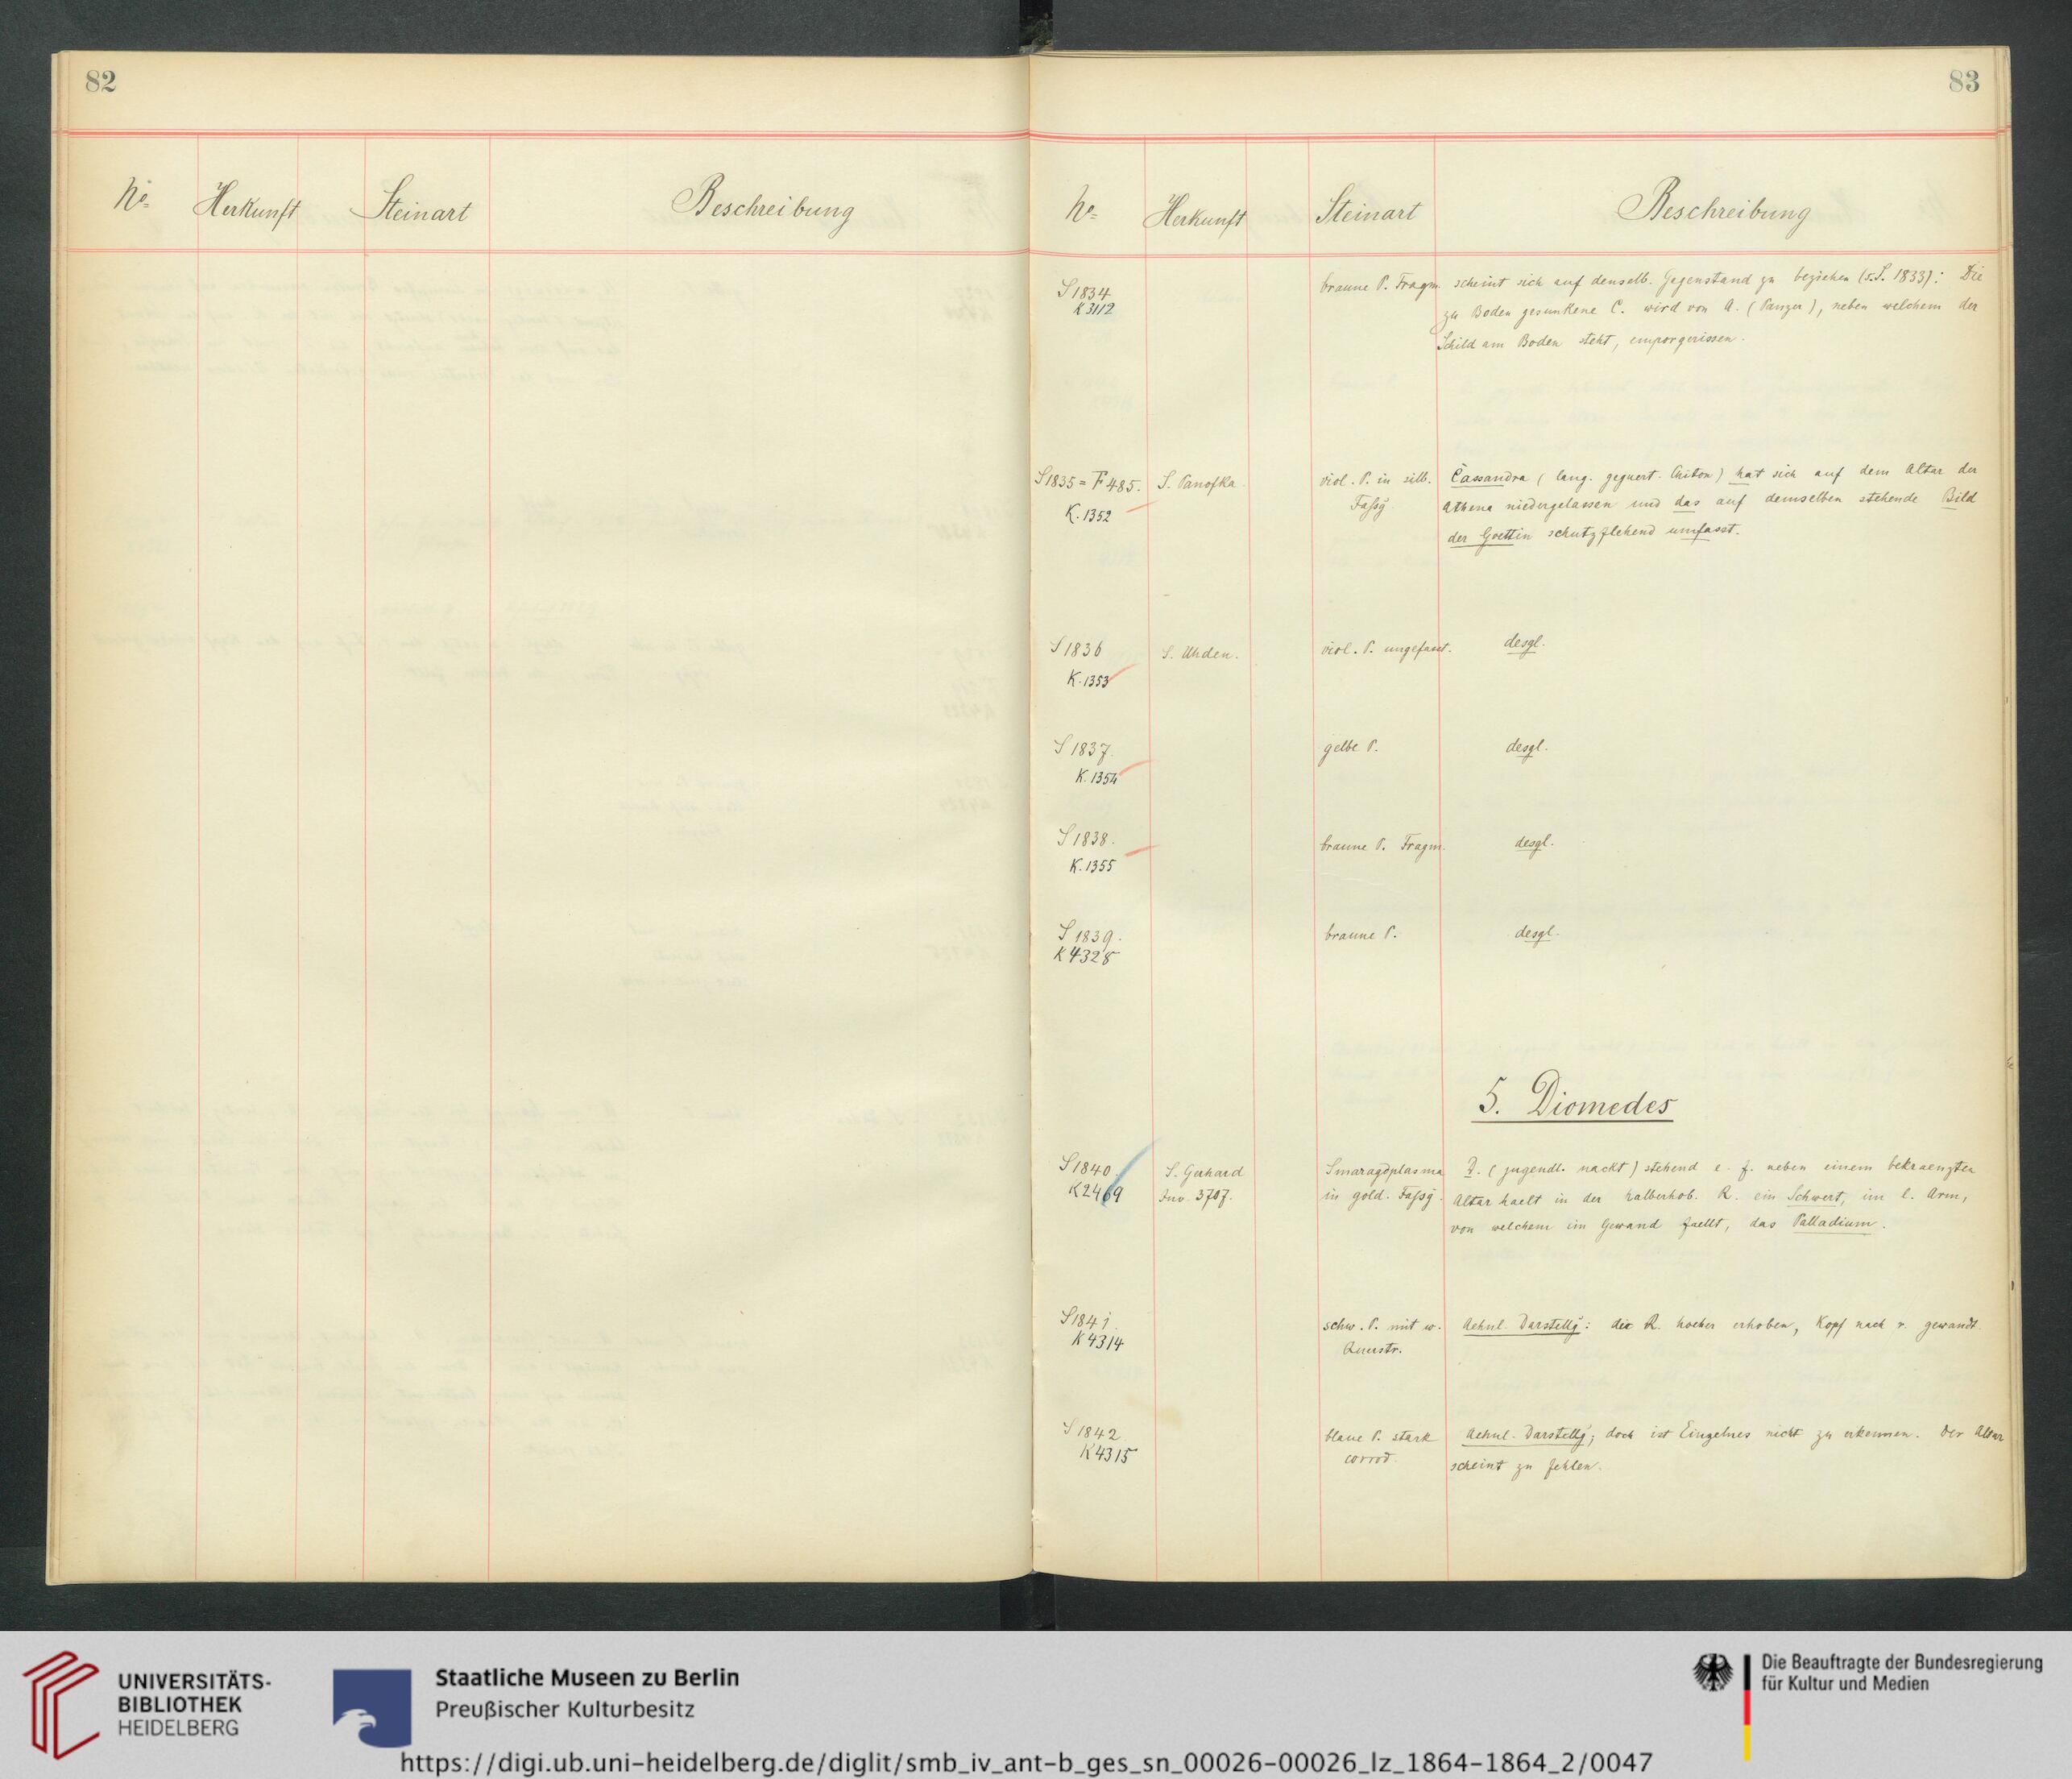 82
83
No. Herkunft Steinart Beschreibung
No. Herkunft Steinart Beschreibung
S 1834
K 3112
braune P. Fragm.
scheint sich auf denselb. Gegenstand zu beziehen (s. S. 1833): Die
zu Boden gesunkene C. wird von A. (Panzer), neben welchem der
Schild am Boden steht, emporgerissen.
S 1835 = F 485.
K. 1352
S. Panofka.
viol. P. in silb.
Faßg.
Cassandra (lang. geguert. Chiton) hat sich auf dem Altar der
Athena niedergelassen und das auf demselben stehende Bild
der Goettin schutzflehend umfasst.
S 1836
K. 1353
S. Uhden.
viol. P. ungefasst.
desgl.
S 1837.
K. 1354
gelbe P.
desgl.
S 1838.
K. 1355
braune P. Fragm.
desgl.
S 1839.
K 4328
braune P.
desgl.
5. Diomedes
S 1840
K 2469
S. Gerhard
Inv. 3707.
Smaragdplasma
in gold. Faßg.
D. (jugendl. nackt) stehend e. f. neben einem bekraenzten
Altar haelt in der halberhob. R. ein Schwert, im l. Arm,
von welchem im Gewand faellt, das Palladium.
S 1841.
K 4314
schw. P. mit w.
Querstr.
Aehnl. Darstellg: die R. hoeher erhoben, Kopf nach r. gewandt.
S 1842.
K 4315
blaue P. stark
corrod.
Aehnl. Darstellg; doch ist Einzelnes nicht zu erkennen. Der Altar
scheint zu fehlen.
UNIVERSITÄTS-
BIBLIOTHEK
HEIDELBERG
Staatliche Museen zu Berlin
Preußischer Kulturbesitz
Die Beauftragte der Bundesregierung
für Kultur und Medien
https://digi.ub.uni-heidelberg.de/diglit/smb_iv_ant-b_ges_sn_00026-00026_lz_1864-1864_2/0047